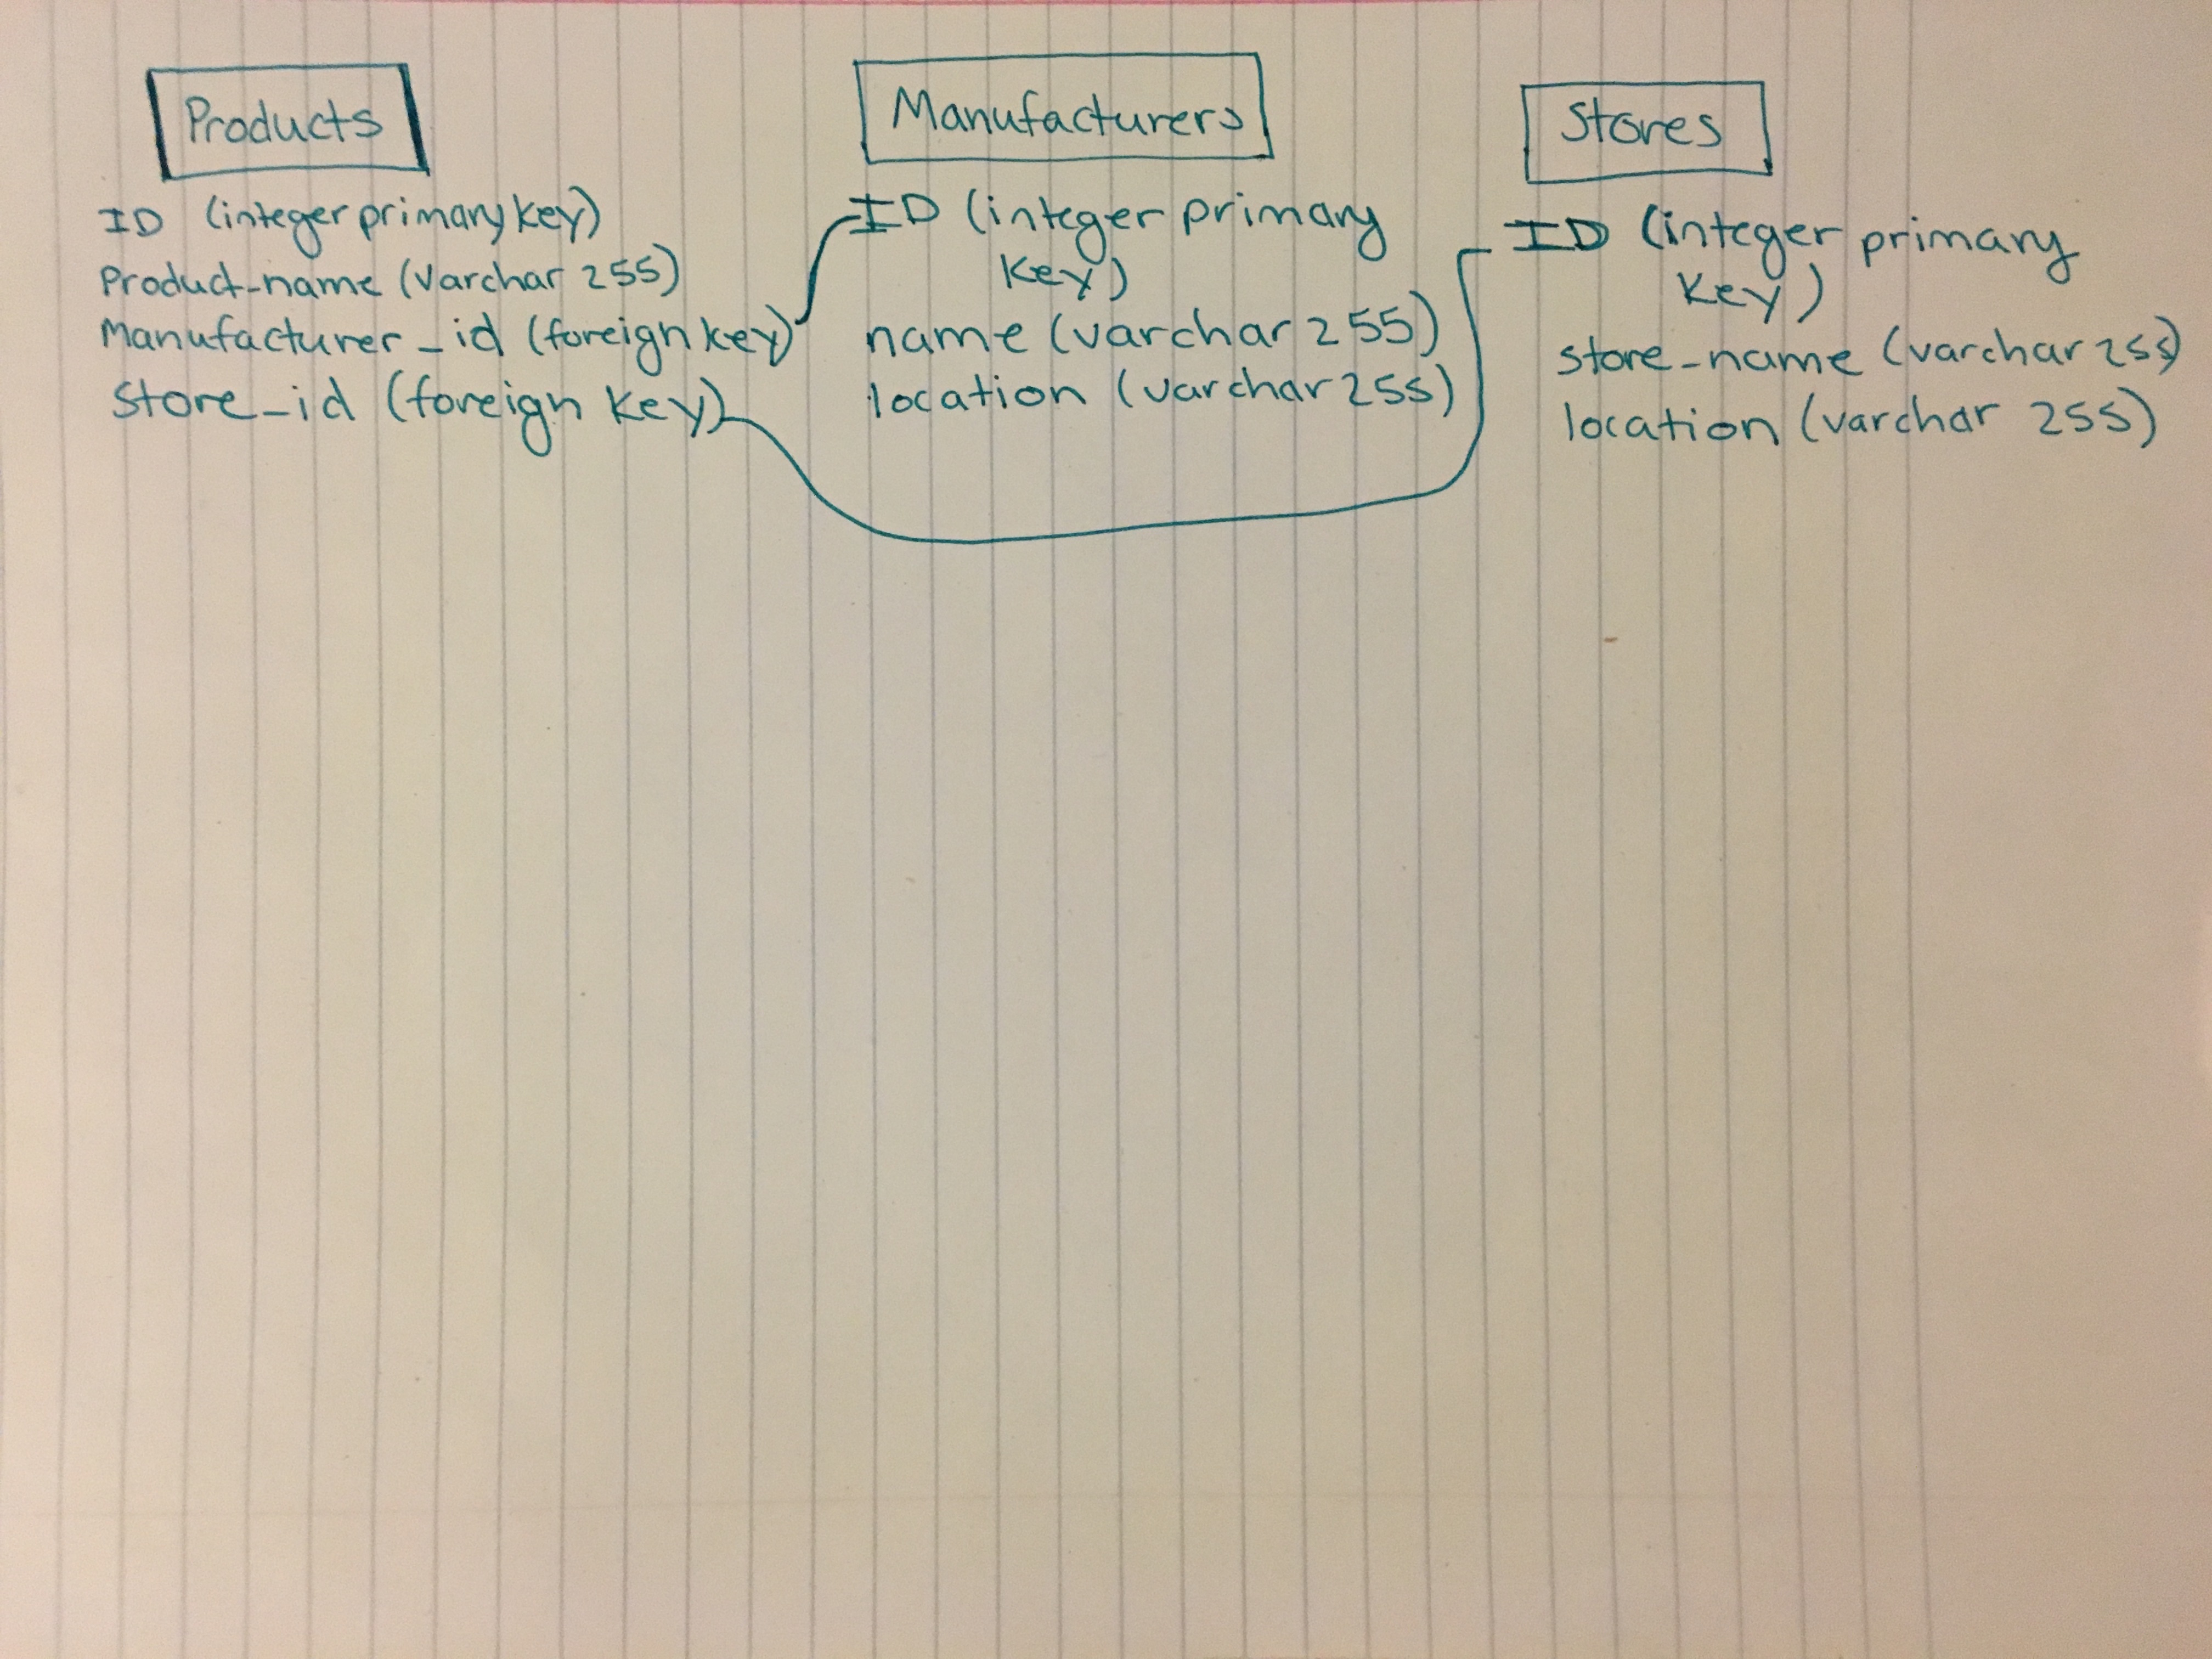 Products
ID (integer primary key)
Product_name (varchar 255)
Manufacturer_id (foreign key)
Store_id (foreign key)
Manufacturers
ID (integer primary
key)
name (varchar 255)
location (varchar 255)
Stores
ID (integer primary
key)
store_name (varchar 255)
location (varchar 255)